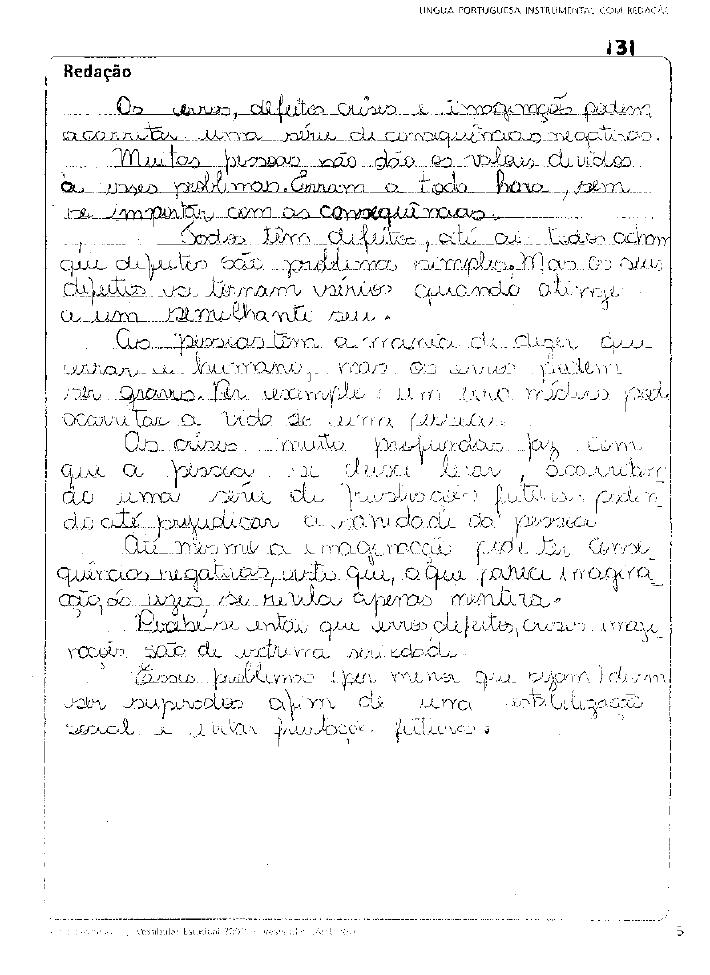 LÍNGUA PORTUGUESA INSTRUMENTAL COM REDAÇÃO
131
Redação
Os erros, defeitos crises e imaginação podem
acarritar uma série de consequências negativas.
Muitas pessoas não dão os valores dividos
à esses problemas. Erram a toda hora, sem
se importar com as consequências.
Todos têm defeitos, até aí todos acham
que defeitos são problema simples. Mas os seus
defeitos se tornam sérios quando atinge
a um semelhante seu.
As pessoas tem a mania de dizer que
errar é humano, mas os erros podem
ser graves. Por exemplo: um erro médico pode
acarritar a vida de uma pessoa.
As crises muito profundas faz com
que a pessoa se deixe levar, acarritan-
do uma série de frustrações futuras poden-
do até prejudicar a sanidade da pessoa
Até mesmo a imaginação pode ter conse-
quências negativas, visto que, o que parecia imagina-
ação às vezes, se revela apenas mentira.
Percebe-se então que erros defeitos, crises imagi-
nações são de extrema seriedade.
Esses problemas (por menor que sejam) devem
ser superados afim de uma estabilização
social e evitar frustações futuras.
Vestibular Estadual
5